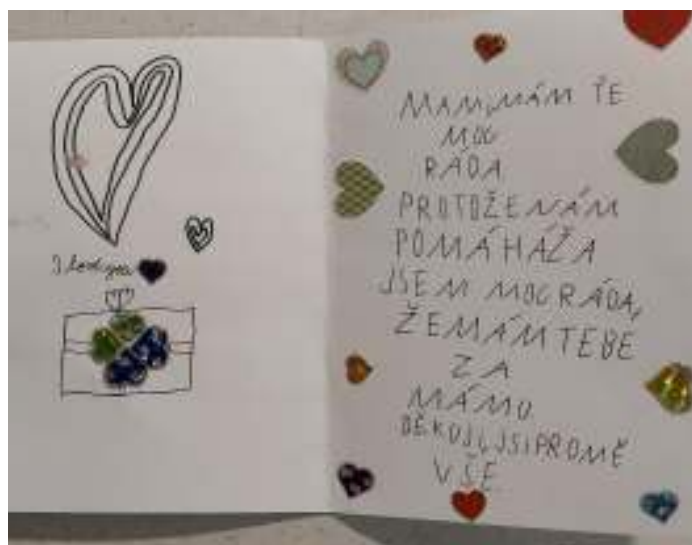 MAMI,MÁM TĚ
MOC
RÁDA
PROTOŽENÁM
POMÁHÁŽA
JSEM MOC RÁDA,
ŽEMÁMTEBE
ZA
MÁMU
DĚKUJI,JSIPROMĚ
VŠE